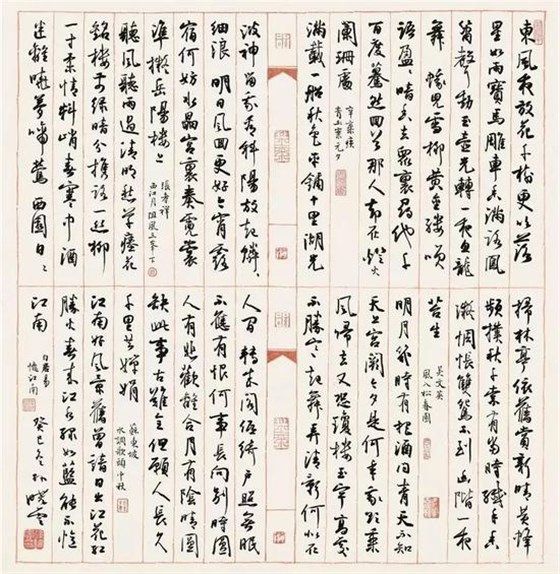 東風夜放花千樹更吹落
星如雨寶馬雕車香滿路鳳
簫聲動玉壺光轉一夜魚龍
舞 蛾兒雪柳黃金縷笑
語盈盈暗香去眾裏尋他千
百度驀然回首那人卻在燈火
闌珊處
辛棄疾
青玉案元夕
滿載一船秋色平鋪十里湖光
波神留我看斜陽放起鱗鱗
細浪 明日風回更好今宵露
宿何妨水晶宮裏奏霓裳
準擬岳陽樓上
張孝祥
西江月阻風三峯下
聽風聽雨過清明愁草瘞花
銘樓前綠暗分攜路一絲柳
一寸柔情料峭春寒中酒
迷離曉夢啼鶯西園日日
掃林亭依舊賞新晴黃蜂
頻撲秋千索有當時纖手香
凝惆悵雙鴛不到幽階一夜
苔生
吳文英
風入松春園
明月幾時有把酒問青天不知
天上宮闕今夕是何年我欲乘
風歸去又恐瓊樓玉宇高處
不勝寒起舞弄清影何似在
人間 轉朱閣低綺戶照無眠
不應有恨何事長向別時圓
人有悲歡離合月有陰晴圓
缺此事古難全但願人長久
千里共嬋娟
蘇東坡
水調歌頭中秋
江南好風景舊曾諳日出江花紅
勝火春來江水綠如藍能不憶
江南
白居易
憶江南
癸巳冬孫曉雲